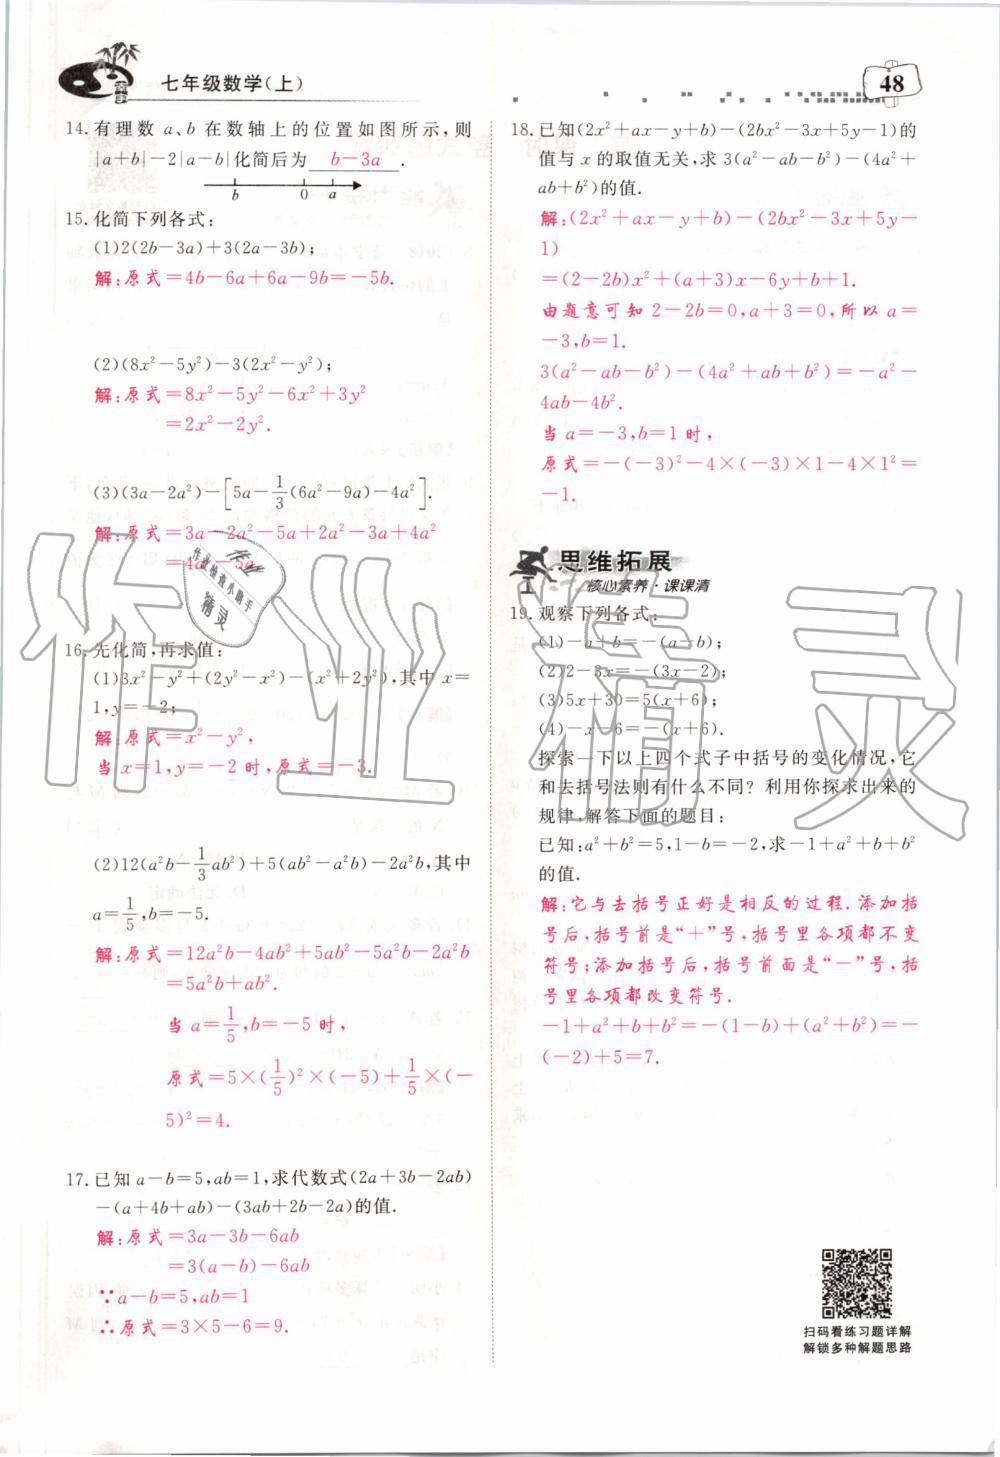 七年级数学(上)
48
14.有理数 a、b 在数轴上的位置如图所示,则
|a+b|-2|a-b|化简后为 b-3a .
b 0 a
15.化简下列各式:
(1)2(2b-3a)+3(2a-3b);
解:原式=4b-6a+6a-9b=-5b.
(2)(8x²-5y²)-3(2x²-y²);
解:原式=8x²-5y²-6x²+3y²
=2x²-2y².
(3)(3a-2a²)-[5a-1/3(6a²-9a)-4a²].
解:原式=3a-2a²-5a+2a²-3a+4a²
=4a²-5a.
16.先化简,再求值:
(1)3x²-y²+(2y²-x²)-(x²+2y²),其中 x=
1,y=-2;
解:原式=x²-y²,
当 x=1,y=-2 时,原式=-3.
(2)12(a²b-1/3ab²)+5(ab²-a²b)-2a²b,其中
a=1/5,b=-5.
解:原式=12a²b-4ab²+5ab²-5a²b-2a²b
=5a²b+ab².
当 a=1/5,b=-5 时,
原式=5×(1/5)²×(-5)+1/5×(-
5)²=4.
17.已知 a-b=5,ab=1,求代数式(2a+3b-2ab)
-(a+4b+ab)-(3ab+2b-2a)的值.
解:原式=3a-3b-6ab
=3(a-b)-6ab
∵a-b=5,ab=1
∴原式=3×5-6=9.
18.已知(2x²+ax-y+b)-(2bx²-3x+5y-1)的
值与 x 的取值无关,求 3(a²-ab-b²)-(4a²+
ab+b²)的值.
解:(2x²+ax-y+b)-(2bx²-3x+5y-
1)
=(2-2b)x²+(a+3)x-6y+b+1.
由题意可知 2-2b=0,a+3=0,所以 a=
-3,b=1.
3(a²-ab-b²)-(4a²+ab+b²)=-a²-
4ab-4b².
当 a=-3,b=1 时,
原式=-(-3)²-4×(-3)×1-4×1²=
-1.
思维拓展
核心素养·课课清
19.观察下列各式:
(1)-a+b=-(a-b);
(2)2-3x=-(3x-2);
(3)5x+30=5(x+6);
(4)-x-6=-(x+6).
探索一下以上四个式子中括号的变化情况,它
和去括号法则有什么不同? 利用你探求出来的
规律,解答下面的题目:
已知:a²+b²=5,1-b=-2,求-1+a²+b+b²
的值.
解:它与去括号正好是相反的过程.添加括
号后,括号前是“+”号,括号里各项都不变
符号;添加括号后,括号前面是“-”号,括
号里各项都改变符号.
-1+a²+b+b²=-(1-b)+(a²+b²)=-
(-2)+5=7.
扫码看练习题详解
解锁多种解题思路
作业精灵
作业
作业检查小助手
精灵